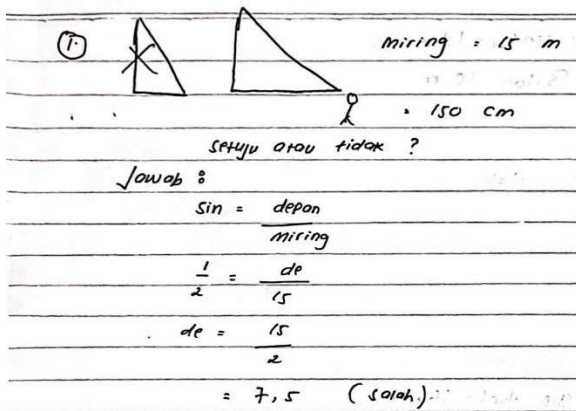 1.
miring = 15 m
= 150 cm
setuju atau tidak ?
Jawab :
sin = depan
miring
1/2 = de/15
de = 15/2
= 7,5 (salah)